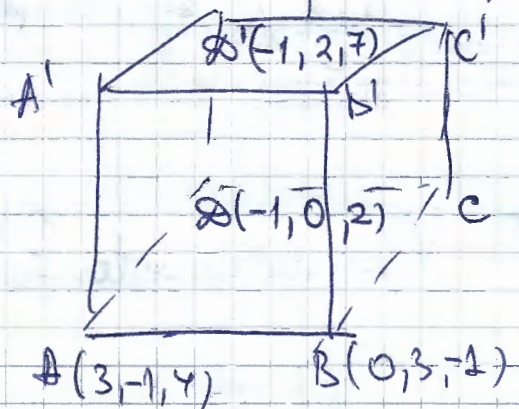 D'(-1, 2, 7)
C'
A'
D'
D(-1, 0, 2)
C
A(3, -1, 4)
B(0, 3, -1)